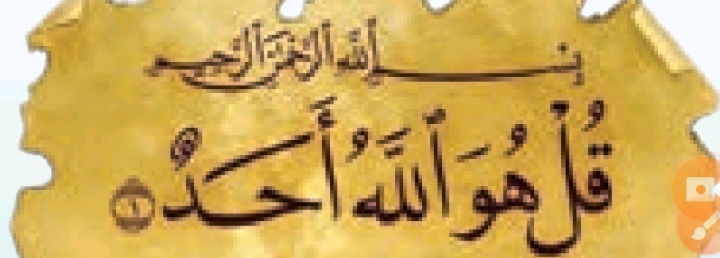 بِسْمِ ٱللَّهِ ٱلرَّحْمَٰنِ ٱلرَّحِيمِ
قُلْ هُوَ ٱللَّهُ أَحَدٌ ١